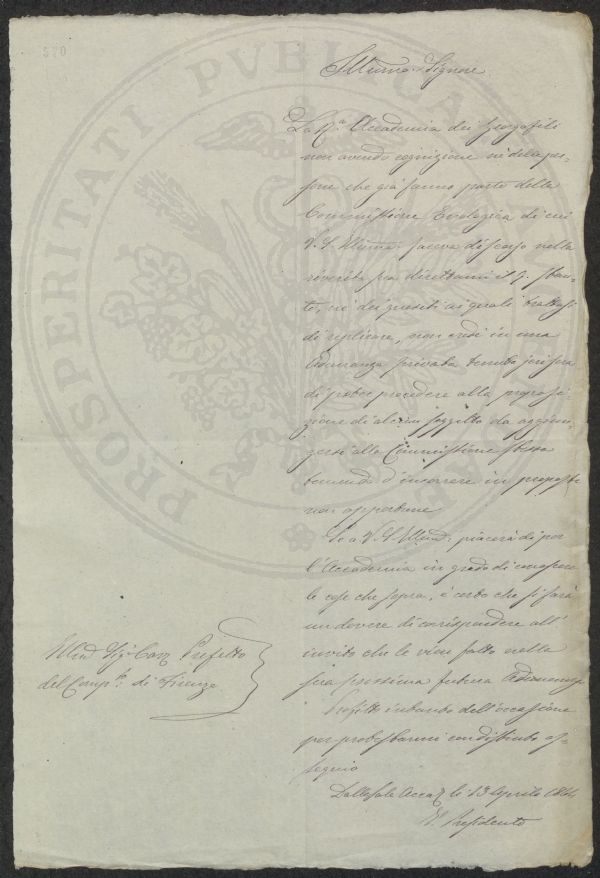 570
PROSPERITATI PVBLICAE AVGENDAE
Illumo: Signore
La Rª Accademia dei Georgofili
non avendo cognizione nè delle per-
sone che già fanno parte della
Commissione Enologica di cui
V. S. Illuma: faceva discorso nella
riverita sua direttami il 9. stan-
te, nè dei quesiti ai quali trattasi
di replicare, non credè in una
Adunanza privata tenuta jeri sera
di poter procedere alla proposi-
zione di alcun soggetto da aggiun-
gersi alla Commissione stessa
temendo d'incorrere in proposte
non opportune
Se a V. S. Illma: piacerà di por
l'Accademia in grado di conoscere
le cose che sopra, è certo che si farà
un dovere di corrispondere all'
invito che le vien fatto nella
sua prossima futura Adunanza
Profitto intanto dell'occasione
per protestarmi con distinto os-
sequio
Dalle Sale Accad. li 13 Aprile
Il Presidente
Sig: Cav: Prefetto
del Comp:to di Firenze